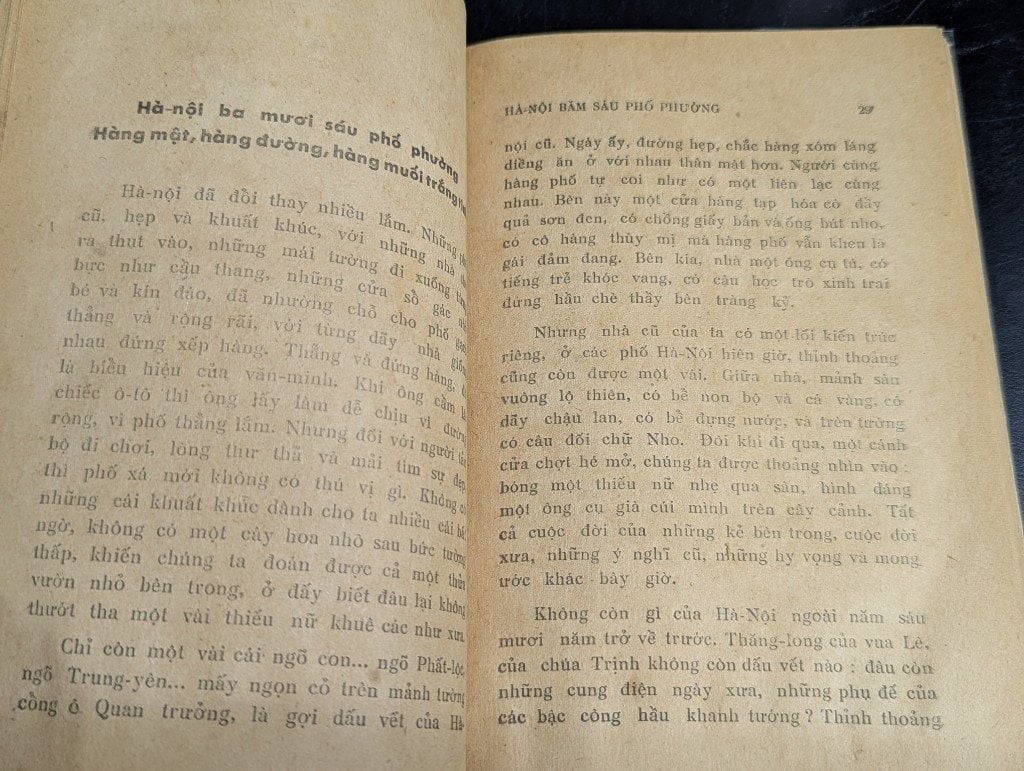 Hà-nội ba mươi sáu phố phường
Hàng mật, hàng đường, hàng muối trắng
Hà-nội đã đổi thay nhiều lắm. Những
cũ, hẹp và khuất khúc, với những nhà
ra thụt vào, những mái tường đi xuống từng
bực như cầu thang, những cửa sổ gác
bé và kín đáo, đã nhường chỗ cho phố
thẳng và rộng rãi, với từng dãy nhà giống
nhau đứng xếp hàng. Thẳng và đứng hàng,
là biểu hiệu của văn-minh. Khi ông cầm
chiếc ô-tô thì ông lấy làm dễ chịu vì đường
rộng, vì phố thẳng lắm. Nhưng đối với người
bộ đi chơi, lòng thư thả và mải tìm sự đẹp
thì phố xá mới không có thú vị gì. Không
những cái khuất khúc dành cho ta nhiều cái bất
ngờ, không có một cây hoa nhỏ sau bức tường
thấp, khiến chúng ta đoán được cả một thửa
vườn nhỏ bên trong, ở đấy biết đâu lại không
thướt tha một vài thiếu nữ khuê các như xưa.
Chỉ còn một vài cái ngõ con... ngõ Phất-lộc,
ngõ Trung-yên... mấy ngọn cỏ trên mảnh tường
cổng ô Quan trưởng, là gợi dấu vết của Hà-
HÀ-NỘI BĂM SÁU PHỐ PHƯỜNG 29
nội cũ. Ngày ấy, đường hẹp, chắc hàng xóm láng
diềng ăn ở với nhau thân mật hơn. Người cùng
hàng phố tự coi như có một liên lạc cùng
nhau. Bên này một cửa hàng tạp hóa có dẫy
quả sơn đen, có chồng giấy bản và ống bút nho,
có cô hàng thùy mị mà hàng phố vẫn khen là
gái đảm đang. Bên kia, nhà một ông cụ tú, có
tiếng trẻ khóc vang, có cậu học trò xinh trai
đứng hầu chè thầy bên tràng kỷ.
Nhưng nhà cũ của ta có một lối kiến trúc
riêng, ở các phố Hà-Nội hiện giờ, thỉnh thoảng
cũng còn được một vài. Giữa nhà, mảnh sân
vuông lộ thiên, có bể non bộ và cá vàng, có
dẫy chậu lan, có bể đựng nước, và trên tường
có câu đối chữ Nho. Đôi khi đi qua, một cánh
cửa chợt hé mở, chúng ta được thoảng nhìn vào :
bóng một thiếu nữ nhẹ qua sân, hình dáng
một ông cụ già cúi mình trên cây cảnh. Tất
cả cuộc đời của những kẻ bên trong, cuộc đời
xưa, những ý nghĩ cũ, những hy vọng và mong
ước khác bây giờ.
Không còn gì của Hà-Nội ngoài năm sáu
mươi năm trở về trước. Thăng-long của vua Lê,
của chúa Trịnh không còn dấu vết nào : đâu còn
những cung điện ngày xưa, những phụ đề của
các bậc công hầu khanh tướng ? Thỉnh thoảng